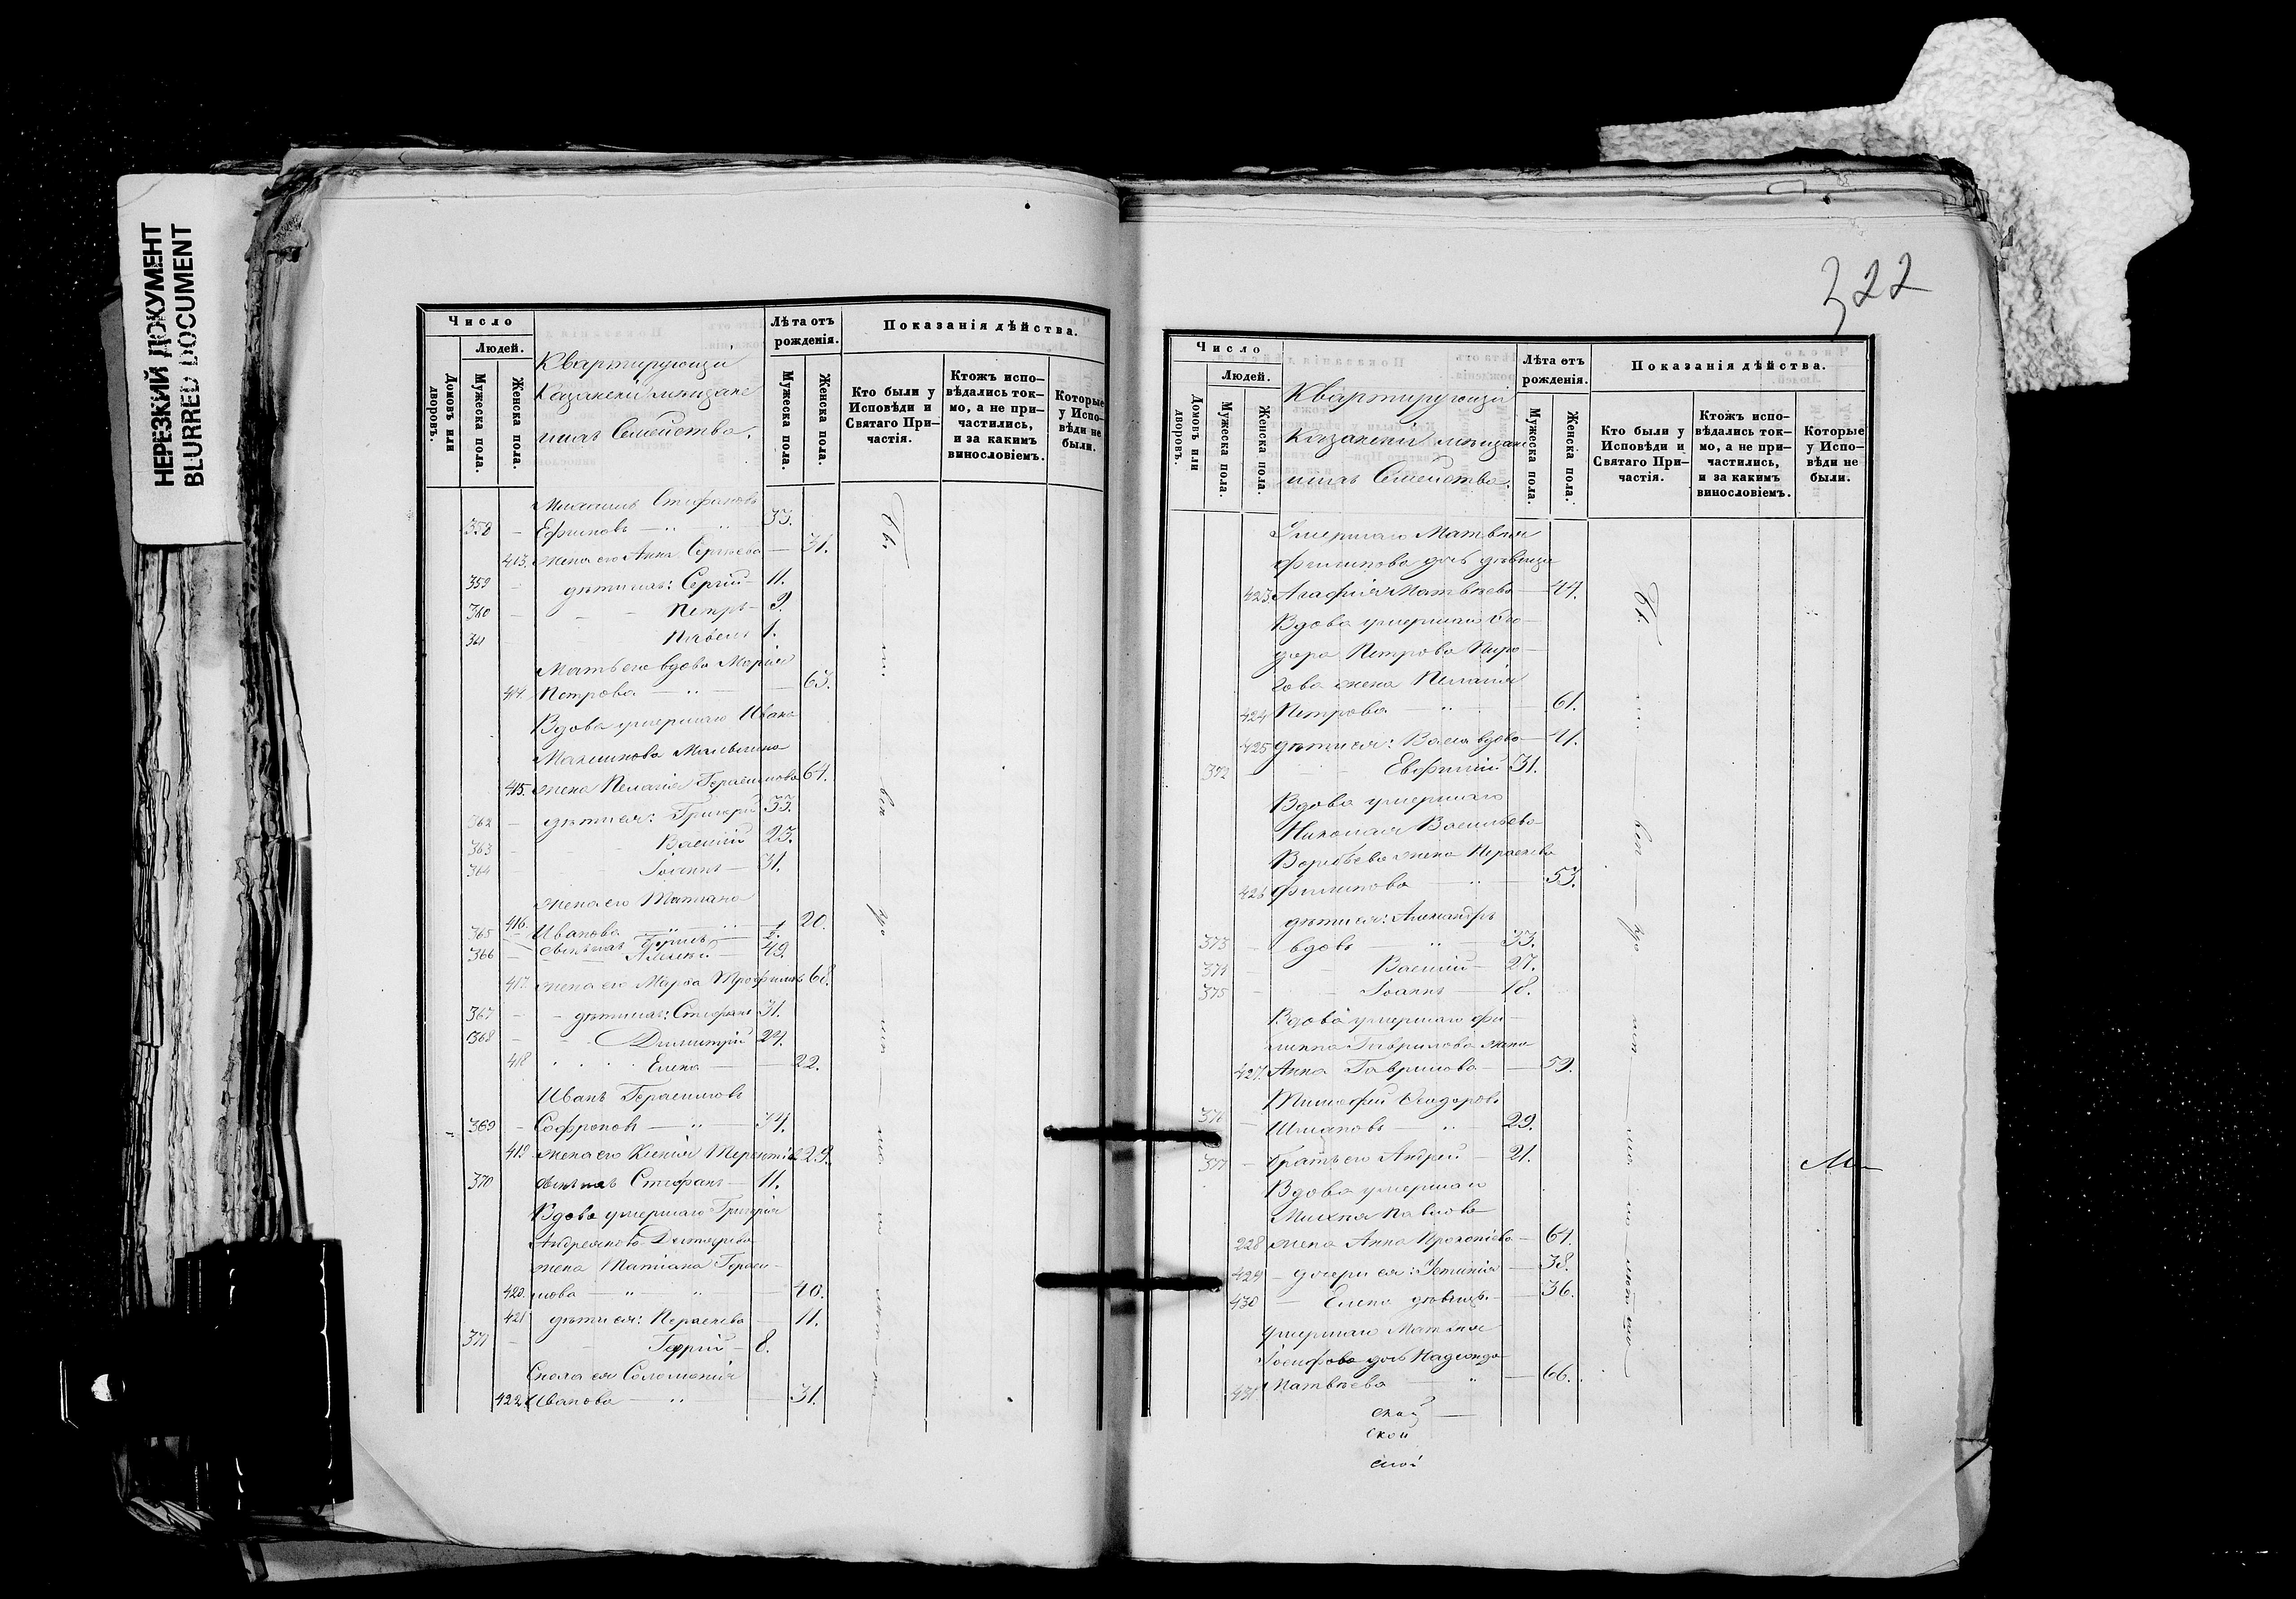 НЕРЕЗКИЙ ДОКУМЕНТ
BLURRED DOCUMENT
Число
Людей.
Домовъ или дворовъ.
Мужеска пола.
Женска пола.
Квартирующихъ
Казанскихъ мѣщане
ихъ Семейства.
Лѣта отъ рожденія.
Мужеска пола.
Женска пола.
Показанія дѣйства.
Кто были у Исповѣди и Святаго Причастія.
Ктожъ исповѣдались токмо, а не причастились, и за какимъ винословіемъ.
Которые у Исповѣди не были.
Михаилъ Стефановъ
358 Ефимовъ 33.
413. жена его Анна Сергѣева 31.
359 дѣти ихъ: Сергій 11.
360 Петръ 3.
361 Павелъ 1.
Мать его вдова Марія
414. Петрова 63.
Вдова умершаго Ивана
Максимова
415. жена Пелагія Герасимова 64.
362 дѣти ея: Григорій 33.
363 Василій 23.
364 Іоаннъ 31.
жена его Татіана
416. Иванова 20.
365
366 Алексѣй 49.
417. жена его Марѳа Трофимова 68.
367 дѣти ихъ: Стефанъ 31.
368 Димитрій 24.
418 Елена 22.
Иванъ Герасимовъ
369 Софроновъ 34.
419 жена его Ксенія Терентьева 29.
370 сынъ ихъ Стефанъ 11.
Вдова умершаго Григорія
жена Татіана Гераси-
420. мова 40.
421 дѣти ея: Параскева 11.
371 8.
Сноха ея Соломонія
422. Иванова 31.
322
Число
Людей.
Домовъ или дворовъ.
Мужеска пола.
Женска пола.
Квартирующихъ
Казанскихъ мѣщане
ихъ Семейства.
Лѣта отъ рожденія.
Мужеска пола.
Женска пола.
Показанія дѣйства.
Кто были у Исповѣди и Святаго Причастія.
Ктожъ исповѣдались токмо, а не причастились, и за какимъ винословіемъ.
Которые у Исповѣди не были.
Умершаго Матвѣя
Филипова дочь дѣвица
423. Агафія Матвѣева 44.
Вдова умершаго Ѳео-
дора Петрова Пиро-
гова жена Пелагія
424 Петрова 61.
425 дѣти ея: вдова 41.
372 Евфимій 31.
Вдова умершаго
Николая Васильева
Воробьева жена Параскева
426 Филипова 53.
дѣти ея: Александръ
373 вдовъ 33.
374 Василій 27.
375 Іоаннъ 18.
Вдова умершаго Фи-
липпа Гаврилова жена
427. Анна Гаврилова 59.
Тимофей Ѳеодоровъ
376 29.
377 братъ его Андрей 21.
Вдова умершаго
Павлова
228 жена Анна Прокопіева 64.
429 дочери ея: Устинія 38.
430 Елена дѣвица 36.
умершаго Матвѣя
Іосифова дочь Надежда
431. Матвѣева 66.
ской
ской